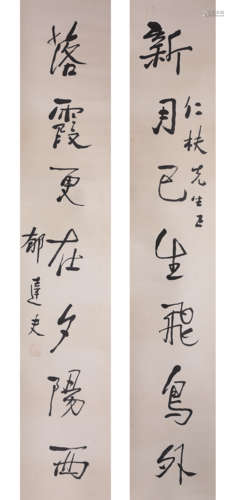 新月已生飛鳥外
仁扶先生正
落霞更在夕陽西
郁達夫